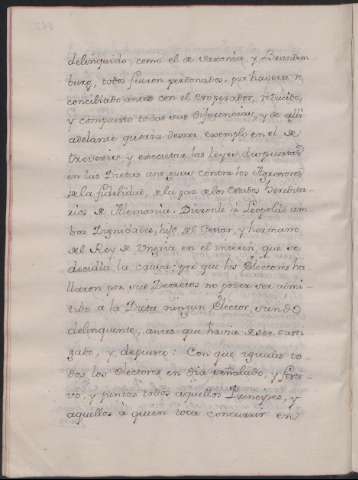 delinquido, como el de Saxonia, y Brandem
burg, todos fueron perdonados, por haverse re
conciliado antes con el Emperador, reducido,
y compuesto todas sus diferencias, y de alli
adelante quiera dexar exemplo en el de
Treveres y executar las leyes dispuestas
en las Dietas antiguas contra los Agresores
de la fidelidad, de la paz de los Estados heredita
rios de Alemania. Durante
bas Dignidades, hijo del Cesar, y hermano
del Rey de Ungria en el interin, que se
decidia la causa: y que los Electores ha
llaron por sus Decretos no poder ser admi
tido a la Dieta ningun Elector, siendo
delinquente, antes que ha de ser casti
gado, y depuesto: Con que iguales to
dos los Electores en dia señalado, y
vo, y juntos todos aquellos Principes, y
aquellos à quien toca concurrir en